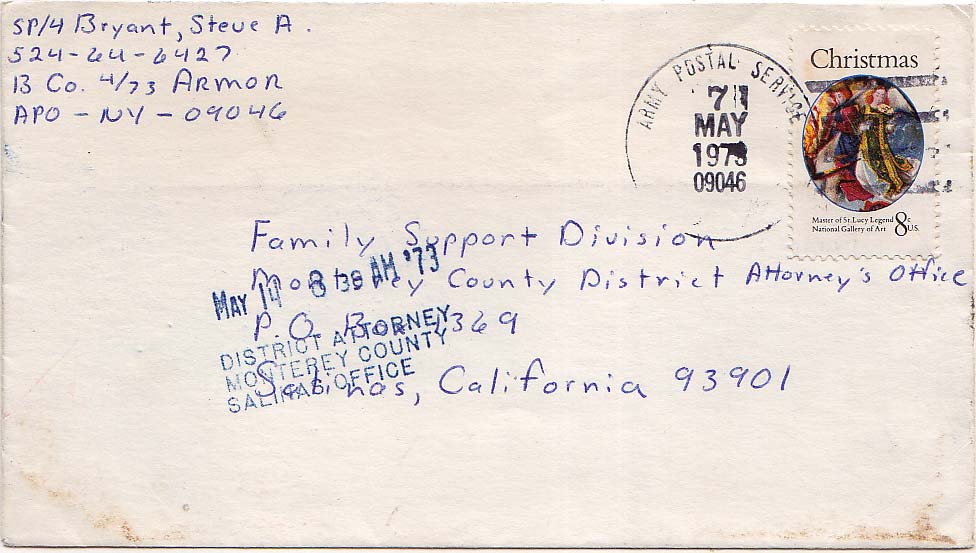 SP/4 Bryant, Steve A.
524-64-6427
B Co. 4/73 ARMOR
APO - NY - 09046
ARMY POSTAL SERVICE
7
MAY
1973
09046
Christmas
Master of St. Lucy Legend
National Gallery of Art
8c
U.S.
Family Support Division
Monterey County District Attorney's Office
P.O. Box 1369
Salinas, California 93901
MAY 14 8 38 AM '73
DISTRICT ATTORNEY
MONTEREY COUNTY
SALINAS OFFICE